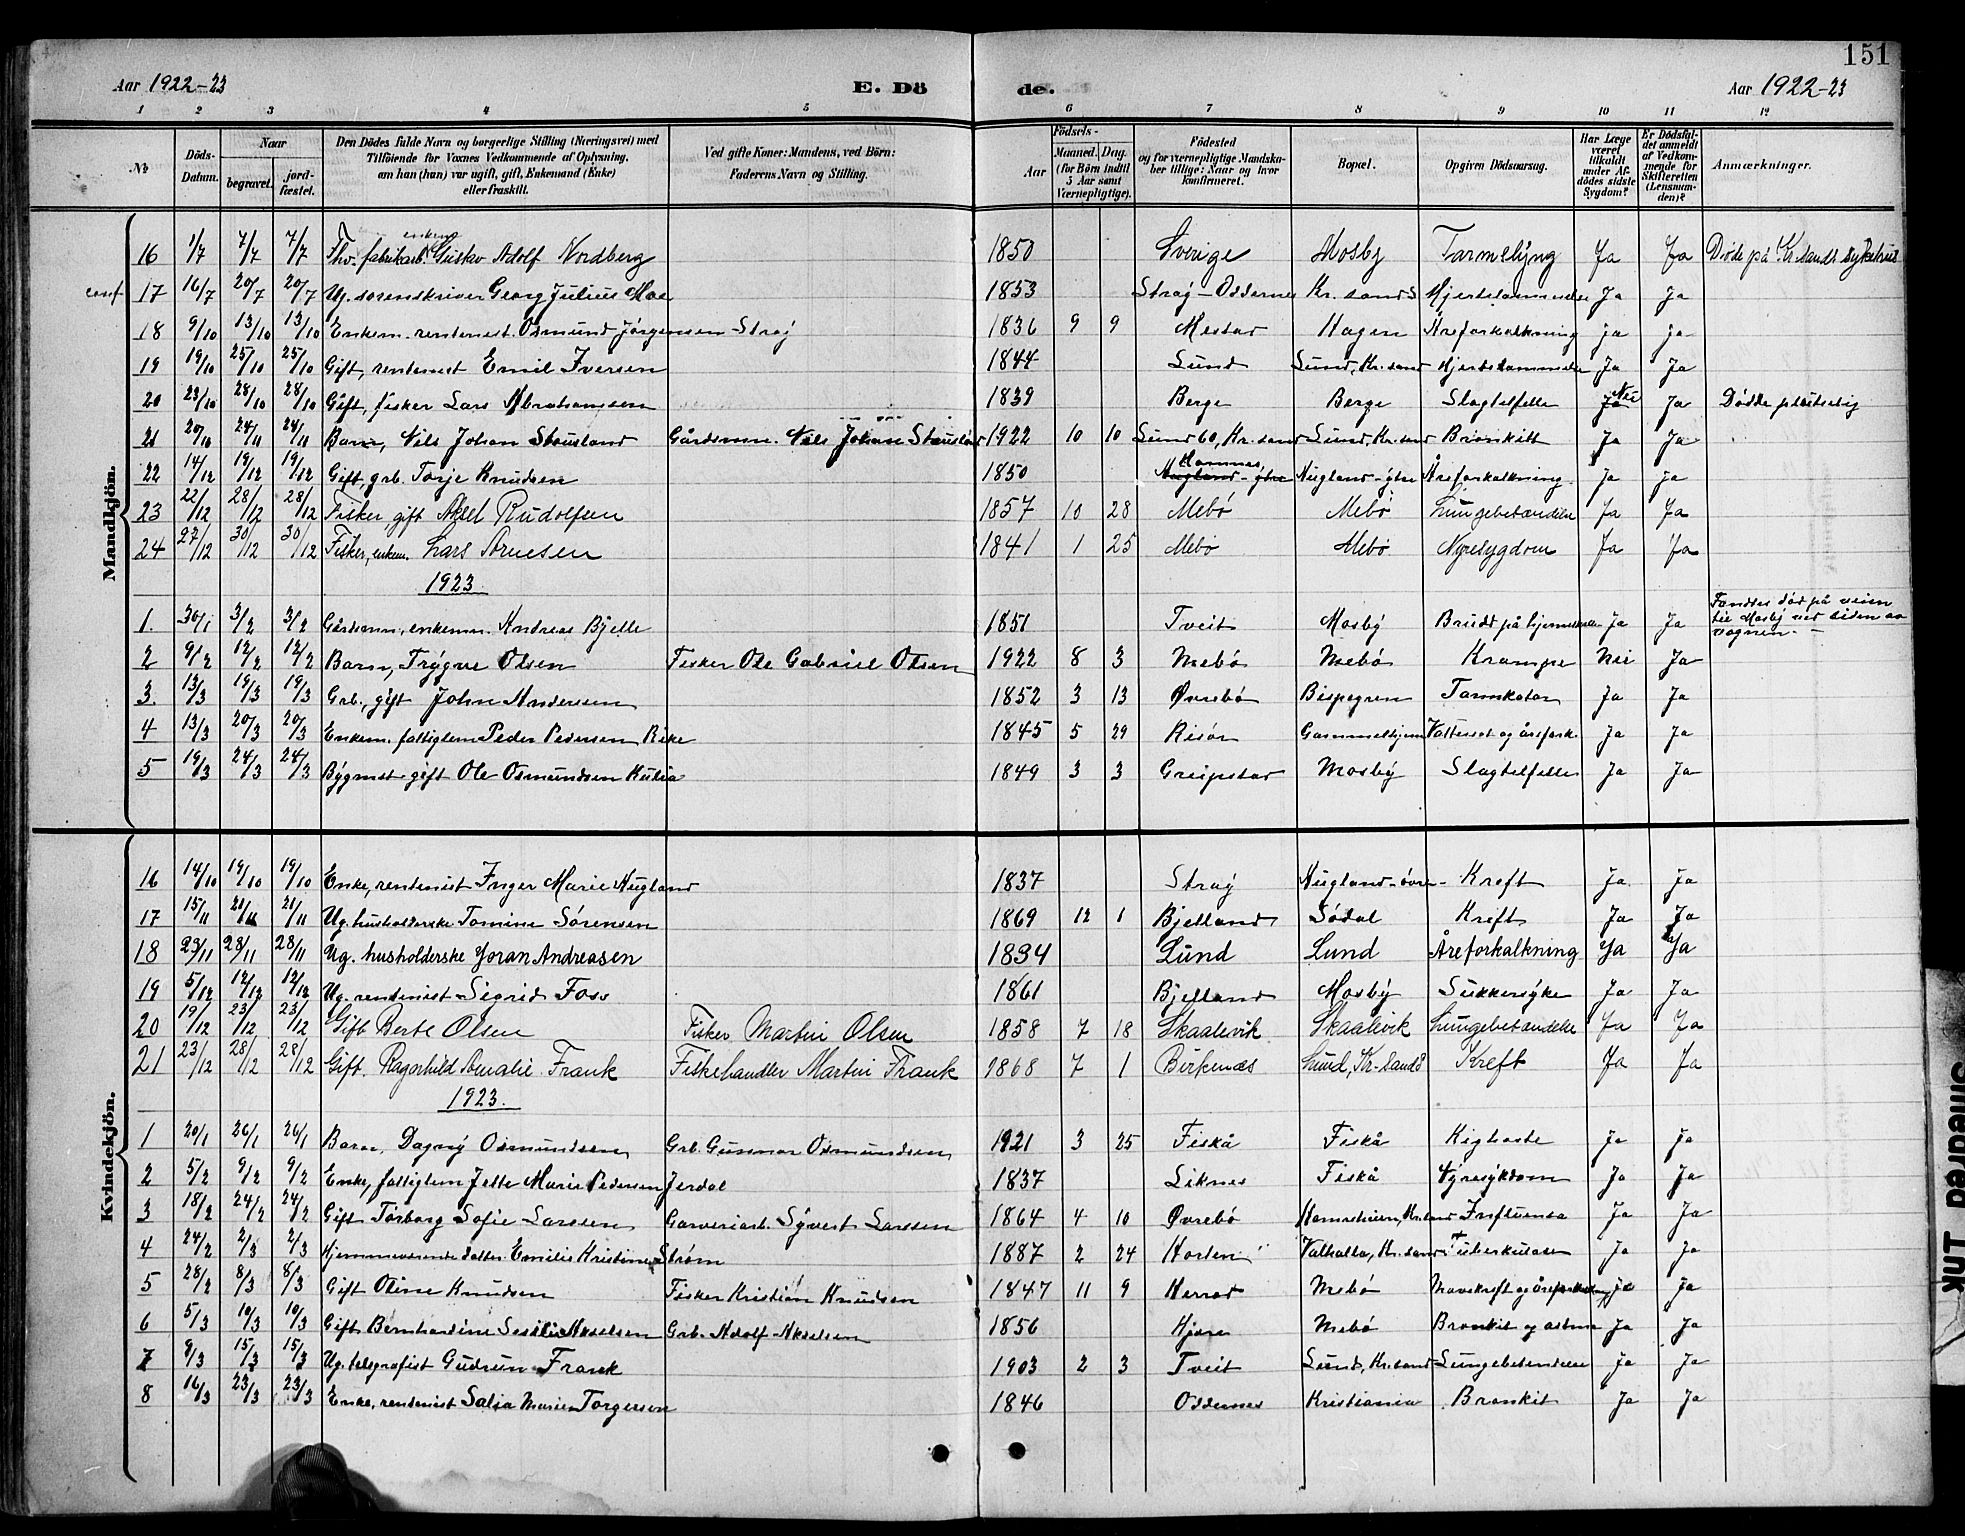 151
Aar 1922-23 E. Dö de. Aar 1922-23
1 2 3 4 5 6 7 8 9 10 11 12
No Döds-Datum. Naar begravet. jordfæstet. Den Dödes fulde Navn og borgerlige Stilling (Næringsvei) med Tilföiende for Voxnes Vedkommende af Oplysning, om han (hun) var ugift, gift, Enkemand (Enke) eller fraskilt. Ved gifte Koner: Mandens, ved Börn: Faderens Navn og Stilling. Födsels- Aar Maaned. Dag. (for Börn indtil 5 Aar samt Værnepligtige). Födested og for værnepligtige Mandskaber tillige: Naar og hvor konfirmeret. Bopæl. Opgiven Dödsaarsag. Har Læge været tilkaldt under Afdödes sidste Sygdom? Er Dödsfaldet anmeldt af Vedkommende for Skifteretten (Lensmanden)? Anmærkninger.
Mandkjön.
16 1/7 7/7 7/7 Fhv. fabrikarb. enkem. Gustav Adolf Nordberg 1850 Sverige Mosby Tarmslyng Ja Ja Døde på Kr.sands sykehus
conf. 17 16/7 20/7 20/7 Ug. sorenskriver Georg Julius Moe 1853 Straj-Oddernes Kr.sand S Hjertelammelse Ja Ja
18 9/10 13/10 13/10 Enkem. rentenist. Osmund Jørgensen Straj 1836 9 9 Mestad Hagen Åreforkalkning ja ja
19 19/10 25/10 25/10 Gift, rentenist Emil Iversen 1844 Lund Lund, Kr.sand Hjertelammelse Ja Ja
20 23/10 28/10 28/10 Gift, fisker Lars Abrahamsen 1839 Berge Berge Slagtilfelle Ja Nei Ja Døde plutselig
21 20/11 24/11 24/11 Barn, Nils Johan Stausland Gårdsmn. Nils Johan Stausland 1922 10 10 Lund 60, Kr.sand Lund, Kr.sand Bronkitt Ja Ja
22 14/12 19/12 19/12 Gift, grb. Torje Knudsen 1850 Hamnes Augland-ytre Augland-ytre Åreforkalkning Ja ja
23 22/12 28/12 28/12 Fisker, gift Aksel Rudolfsen 1857 10 28 Mebø Mebø Lungebetændelse Ja Ja
24 27/12 30/12 30/12 Fisker, enkem. Lars Arnesen 1841 1 25 Mebø Mebø Nyresygdom Ja Ja
1923
1. 30/1 3/2 3/2 Gårdsmn., enkemn. Andreas Bjelle 1851 Tveit Mosby Brudd på hjerneskallen Ja Ja Fandtes død på veien til Mosby ved siden av vognen.
2 9/2 12/2 12/2 Barn, Trygve Olsen Fisker Ole Gabriel Olsen 1922 8 3 Mebø Mebø Krampe Nei Ja
3. 13/3 19/3 19/3 Grb., gift John Andersen 1852 3 13 Øvrebø Bispegren Tarmkatar Ja Ja
4 13/3 20/3 20/3 Enkem. fattiglem Peder Pedersen Rike 1845 5 29 Risør Gammelhjem Vattersot og årefork. Ja Ja
5 19/3 24/3 24/3 Bygmst. gift Ole Osmundsen Kulia 1849 3 3 Greipstad Mosby Slagtilfelle Ja Ja
Kvindekjön.
16 14/10 19/10 19/10 Enke, rentenist Inger Marie Augland 1837 Straj Augland-øvre Kreft Ja Ja
17 15/11 21/11 21/11 Ug. husholderske Tomine Sørensen 1869 12 1 Bjelland Sødal Kreft Ja Ja
18 23/11 28/11 28/11 Ug. husholderske Joran Andreasen 1834 Lund Lund Åreforkalkning Ja Ja
19 5/12 12/12 12/12 Ug. rentenist Sigrid Foss 1861 Bjelland Mosby Sukkersyke Ja Ja
20 19/12 23/12 23/12 Gift Berte Olsen Fisker Martin Olsen 1858 7 18 Skaalevik Skaalevik Lungebetændelse Ja Ja
21 23/12 28/12 28/12 Gift. Ragnhild Amalie Frank Fiskehandler Martin Frank 1868 7 1 Birkenæs Lund, Kr.sand S Kreft Ja Ja
1923.
1 20/1 26/1 26/1 Barn, Dagny Osmundsen Grb. Gunnar Osmundsen 1921 3 25 Fiskå Fiskå Kighoste Ja Ja
2 5/2 9/2 9/2 Enke, fattiglem Jette Marie Pedersen Jerdal 1837 Liknes Fiskå Nyresykdom Ja Ja
3 18/2 24/2 24/2 Gift Torborg Sofie Larssen Garveriarb. Syvert Larssen 1864 4 10 Øvrebø Kr.sand Influensa Ja Ja
4 24/2 2/3 2/3 Hjemmeværende datter Emilie Kristine Strøm 1887 2 24 Horten Valhalla, Kr.sand Tuberkulose Ja Ja
5 28/2 8/3 8/3 Gift Oline Knudsen Fisker Kristian Knudsen 1847 11 9 Herrad Mebø Mavekreft og åreforkalkning Ja Ja
6 5/3 10/3 10/3 Gift Bernhardine Sesilie Akselsen Grb. Adolf Akselsen 1856 Mebø Bronkit og astma Ja Ja
7 9/3 15/3 15/3 Ug. telegrafist Gudrun Frank 1903 2 3 Tveit Lund, Kr.sand Lungebetendelse Ja Ja
8 16/3 23/3 23/3 Enke, rentenist Salia Marie Torgersen 1846 Oddernes Kristiania Bronkit Ja Ja
Smeared Ink